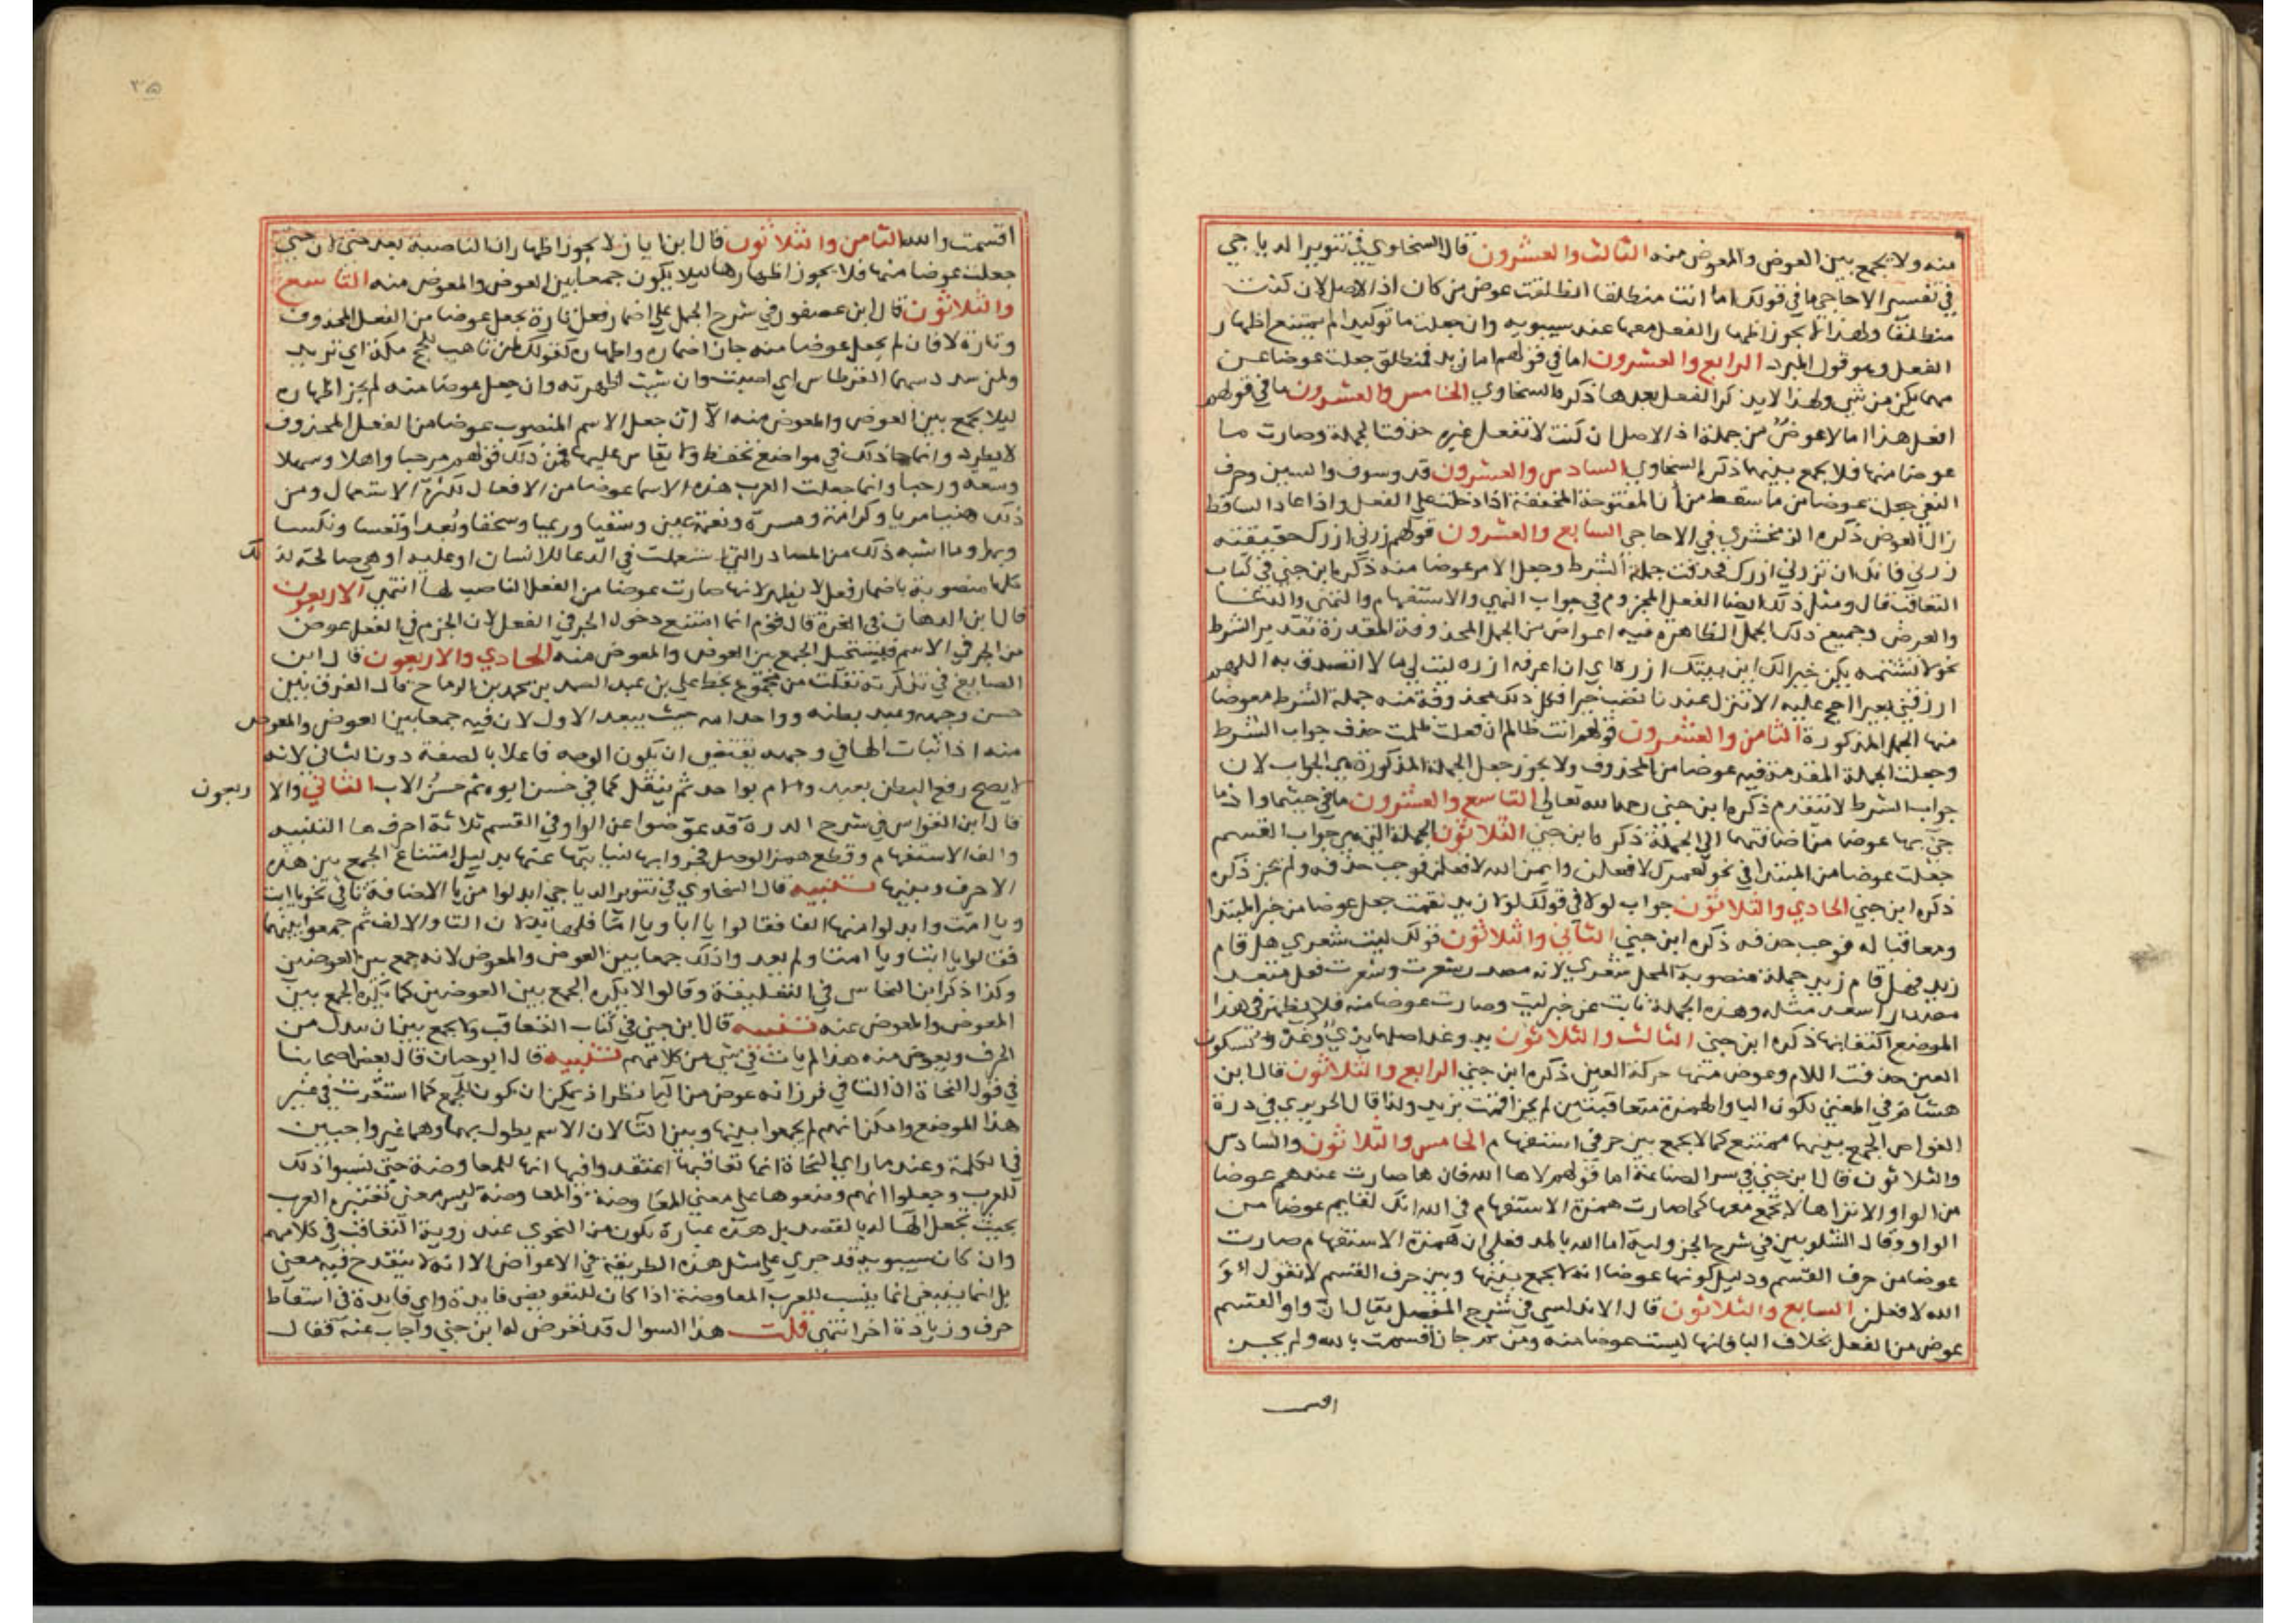 منه ولا يجمع بين العوض والمعوض منه الثالث والعشرون قال السخاوي في تنوير الدياجي
في تفسير الاحاجي ما في قولك اما انت منطلقا انطلقت عوض من كان اذ الاصل لان كنت
منطلقا ولهذا لا يجوز اظهار الفعل معها عند سيبويه وان جعلت ما توكيدا لم يمتنع اظهار
الفعل وهو قول المبرد الرابع والعشرون اما في قولهم اما زيد فمنطلق جعلت عوضا عن
مهما يكن من شي ولهذا لا يذكر الفعل بعدها ذكره السخاوي الخامس والعشرون ما في قولهم
افعل هذا اما لا عوض من جملة اذ الاصل ان كنت لا تفعل غيره حذفت الجملة وصارت ما
عوضا منها فلا يجمع بينهما ذكره السخاوي السادس والعشرون قد وسوف والسين وحرف
النفي جعلت عوضا من ما سقط من أن المفتوحة المخففة اذا دخلت على الفعل واذا عاد الساقط
زال العوض ذكره الزمخشري في الاحاجي السابع والعشرون قولهم زرني ازرك حقيقته
زرني فانك ان تزرني ازرك فحذفت جملة الشرط وجعل الامر عوضا منه ذكره ابن جني في كتاب
التعاقب قال ومثل ذلك ايضا الفعل المجزوم في جواب النهي والاستفهام والتمني والدعا
والعرض وجميع ذلك الجمل الظاهرة فيه اعواض من الجمل المحذوفة المقدرة تقدير الشرط
نحو لا تشتمه يكن خيرا لك اين بيتك ازره اي ان اعرفه ازره ليت لي مالا اتصدق به اللهم
ارزقني بعيرا احج عليه الا تنزل عندنا تصب خيرا فكل ذلك محذوفة منه جملة الشرط معوضا
منها الجمل المذكورة الثامن والعشرون قولهم انت ظالم ان فعلت ظلمت حذف جواب الشرط
وجعلت الجملة المقدمة فيه عوضا من المحذوف ولا يجوز جعل الجملة المذكورة هي الجواب لان
جواب الشرط لا يتقدم ذكره ابن جني رحمه الله تعالى التاسع والعشرون ما في حيثما واذما
جئ بها عوضا من اضافتهما الى الجملة ذكره ابن جني الثلاثون الجملة التي هي جواب القسم
جعلت عوضا من المبتدا في نحو لعمرك لافعلن وايمن الله لافعلن فوجب حذفه ولم يجز ذكره
ذكره ابن جني الحادي والثلاثون جواب لولا في قولك لولا زيد لقمت جعل عوضا من خبر المبتدا
ومعاقبا له فوجب حذفه ذكره ابن جني الثاني والثلاثون قولك ليت شعري هل قام
زيد فهل قام زيد جملة منصوبة المحل بشعري لانه مصدر شعرت وشعرت فعل متعد
مصدر اسعد مثله وهذه الجملة نابت عن خبر ليت وصارت عوضا منه فلا يظهر في هذا
الموضع اكتفا بها ذكره ابن جني الثالث والثلاثون يد وغد اصلهما يدي وغدو بسكون
العين حذفت اللام وعوض منها حركة العين ذكره ابن جني الرابع والثلاثون قال ابن
هشام في المغني لكون البا والهمزة متعاقبتين لم يجز اقمت بزيد ولذا قال الحريري في درة
الغواص الجمع بينهما ممتنع كما لا يجمع بين حرفي استفهام الخامس والثلاثون والسادس
والثلاثون قال ابن جني في سر الصناعة اما قولهم لاها الله فان ها صارت عندهم عوضا
من الواو الا تراها لا تجتمع معها كما صارت همزة الاستفهام في الله انك لقايم عوضا من
الواو وقال الشلوبين في شرح الجزولية اما الله بالمد فعلى ان همزة الاستفهام صارت
عوضا من حرف القسم ودليل كونها عوضا انه لا يجمع بينها وبين حرف القسم لا تقول أو
الله لافعلن السابع والثلاثون قال الاندلسي في شرح المفصل يقال ان واو القسم
عوض من الفعل بخلاف البا فانها ليست عوضا منه ومن ثم جاز اقسمت بالله ولم يجز
اقس
٣٥
اقسمت والله الثامن والثلاثون قال ابن اياز لا يجوز اظهار ان الناصبة بعد حتى لان حتى
جعلت عوضا منها فلا يجوز اظهارها ليلا يكون جمعا بين العوض والمعوض منه التاسع
والثلاثون قال ابن عصفور في شرح الجمل على اضمار فعل تارة يجعل عوضا من الفعل المحذوف
وتارة لا فان لم يجعل عوضا منه جاز اضماره واظهاره كقولك لمن تاهب للحج مكة اي تريد
ولمن سدد سهما القرطاس اي اصبت وان شيت اظهرته وان جعل عوضا منه لم يجز اظهاره
ليلا يجمع بين العوض والمعوض منه الا ان جعل الاسم المنصوب عوضا من الفعل المحذوف
لا يطرد وانما جا ذلك في مواضع تحفظ ولا يقاس عليها فمن ذلك قولهم مرحبا واهلا وسهلا
وسعة ورحبا وانما جعلت العرب هذه الاسما عوضا من الافعال لكثرة الاستعمال ومن
ذلك هنيا مريا وكرامة ومسرة ونعمة عين وسقيا ورعيا وسحقا وبعدا وتعسا ونكسا
وبهرا وما اشبه ذلك من المصادر التي استعملت في الدعا للانسان او عليه او هي صالحة لذ لك
كلها منصوبة باضمار فعل لا يظهر لانها صارت عوضا من الفعل الناصب لها انتهى الاربعون
قال ابن الدهان في الغرة قال قوم انما امتنع دخول الجر في الفعل لان الجزم في الفعل عوض
من الجر في الاسم فيستحيل الجمع بين العوض والمعوض منه الحادي والاربعون قال ابن
الصايغ في تذكرته نقلت من مجموع بخط علي بن عبد الصمد بن محمد بن الرماح قال الفرق بين
حسن وجهه وعبد بطنه وواحد امه حيث يبعد الاول لان فيه جمعا بين العوض والمعوض
منه اذ اثبات الها في وجهه يقتضي ان يكون الوجه فاعلا بالصفة دون الثاني لانه
لا يصح رفع البطن بعبد والام بواحد ثم ينقل كما في حسن ابوه ثم حسن الاب الثاني والا ربعون
قال ابن القواس في شرح الدرة قد عوضوا عن الواو في القسم ثلاثة احرف ها التنبيه
والف الاستفهام وقطع همز الوصل فجروا بها لنيابتها عنها بدليل امتناع الجمع بين هذه
الاحرف وبينها تنبيه قال السخاوي في تنوير الدياجي ابدلوا من يا الاضافة تا في نحو يا ابت
ويا امت وابدلوا منها الفا فقالوا يا ابا ويا اما فلهما بدلان التا والالف ثم جمعوا بينهما
فقالوا يا ابتا ويا امتا ولم يعد واذلك جمعا بين العوض والمعوض لانه جمع بين العوضين
وكذا ذكر ابن النحاس في التعليقة وقالوا لا يكره الجمع بين العوضين كما يكره الجمع بين
العوض والمعوض عنه تنبيه قال ابن جني في كتاب التعاقب ولا يجمع بين ان يبدل من
الحرف ويعوض منه هذا لم يات في شي من كلامهم تنبيه قال ابو حيان قال بعض اصحابنا
في قول النحاة ان التا في فرزانه عوض من اليا نظر اذ يمكن ان يكون للجمع كما استقرت في غير
هذا الموضع وامكن انهم لم يجمعوا بينها وبين التا لان الاسم يطول بهما وهما غير واجبين
في الكلمة وعندما راي النحاة انها تعاقبها اعتقدوا فيها انها للمعاوضة حتى نسبوا ذلك
للعرب وجعلوا انهم وضعوها على معنى المعاوضة والمعاوضة ليس معنى تعتبره العرب
بحيث تجعل الها له بالقصد بل هذه عبارة تكون من النحوي عند روية التعاقب في كلامهم
وان كان سيبويه قد جري على مثل هذه الطريقة في الاعواض الا انه لا ينقدح فيه معنى
بل انما ينبغي انما ينسب للعرب المعاوضة اذا كان للتعويض فايدة واي فايدة في اسقاط
حرف وزيادة اخر انتهى قلت هذا السوال قد تعرض له ابن جني واجاب عنه فقال